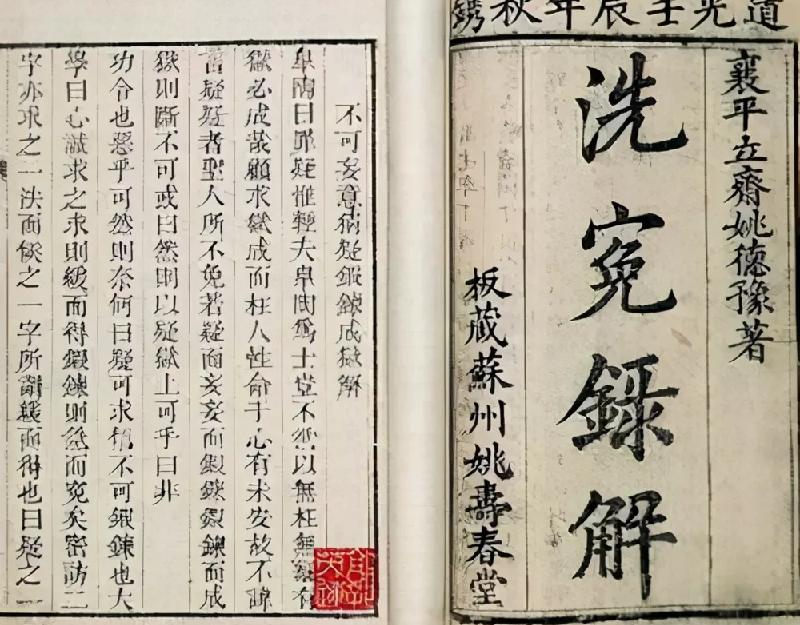 道光壬辰年秋鐫
襄平立齋姚德豫著
洗寃錄解
板藏蘇州姚壽春堂
不可妄意猜疑鍛鍊成獄解
皐陶曰罪疑惟輕夫皐陶爲士豈不能以無枉無縱有
獄必成哉顧求獄成而枉人性命于心有未安故不諱
言疑疑者聖人所不免若疑而妄妄而鍛鍊鍛鍊而成
獄則斷不可或曰然則以疑獄上可乎曰非
功令也惡乎可然則奈何曰疑可求不可鍛鍊也大
學曰心誠求之求則緩而得鍛鍊則急而寃矣密訪二
字亦求之一法而俟之一字所謂緩而得也曰疑之一